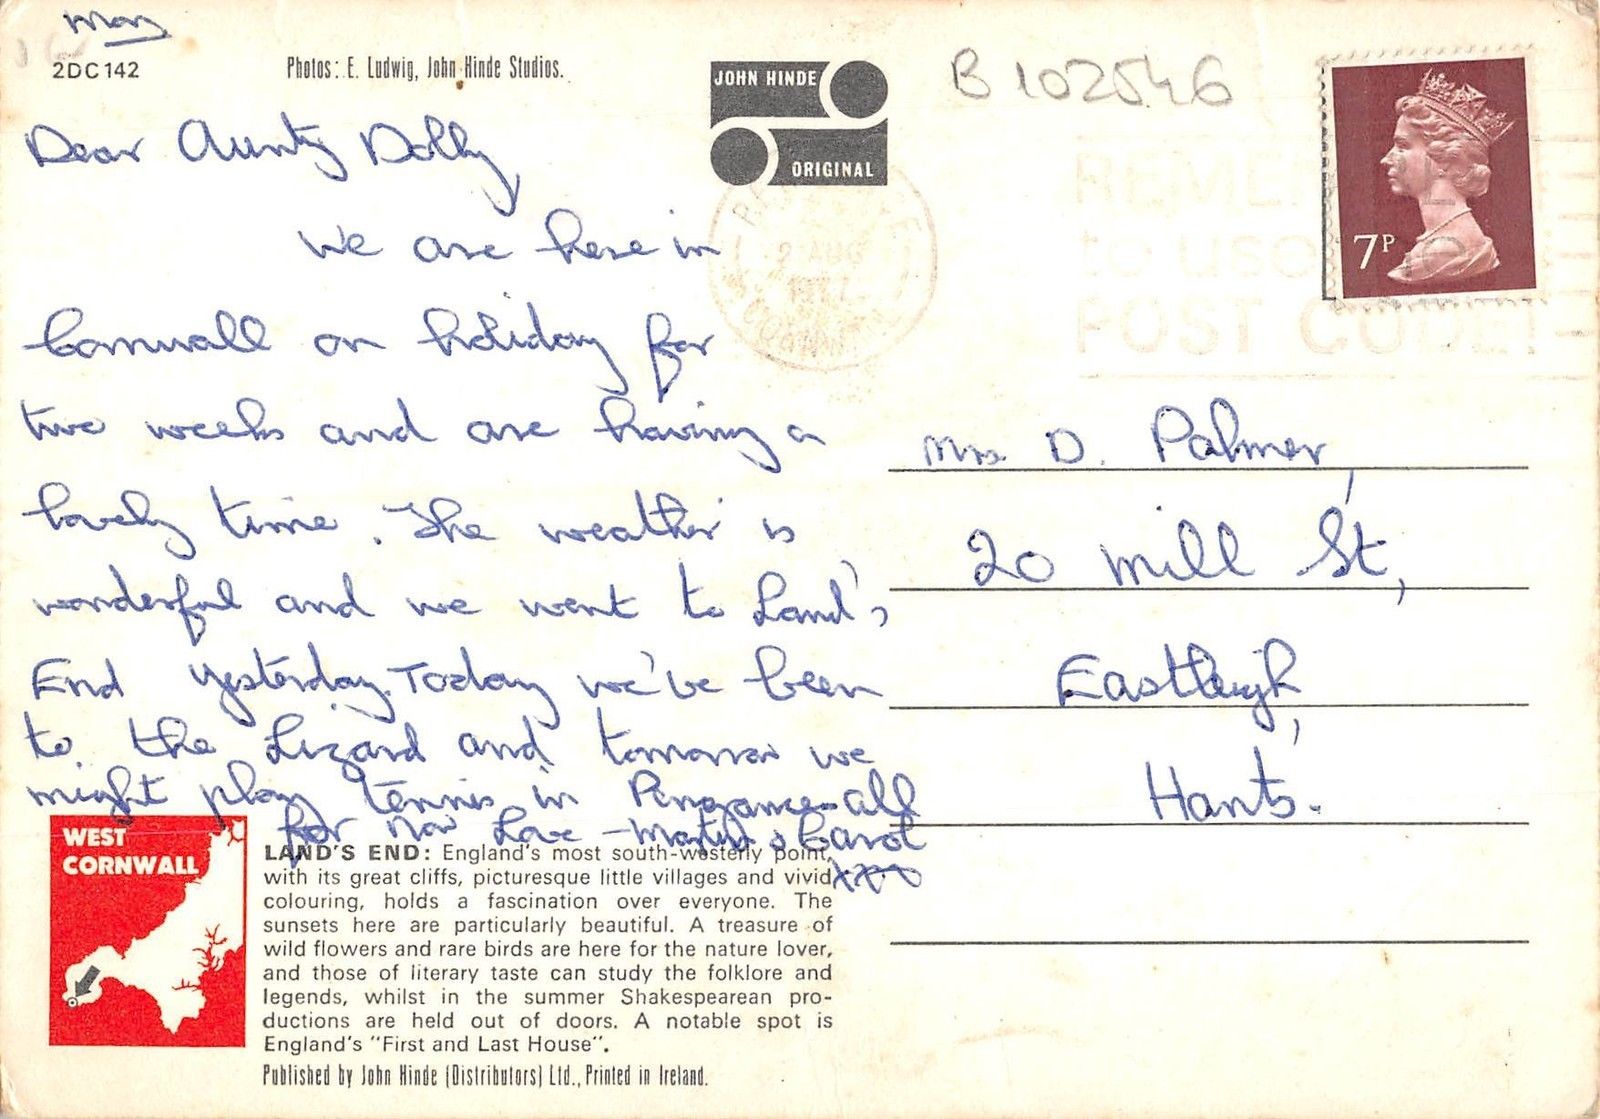 May
2DC142
Photos: E. Ludwig, John Hinde Studios.
JOHN HINDE
ORIGINAL
B102546
7P
2 AUG
1977
CORNWALL
REMEMBER
to use
POST CODE!
Dear Aunty Dolly,
We are here in
Cornwall on holiday for
two weeks and are having a
lovely time. The weather is
wonderful and we went to Land's
End yesterday. Today we've been
to the Lizard and tomorrow we
might play tennis in Penzance - all
for now Love - Martin & Carol
xxx
Mrs D. Palmer,
20 Mill St,
Eastleigh,
Hants.
WEST
CORNWALL
LAND'S END: England's most south-westerly point,
with its great cliffs, picturesque little villages and vivid
colouring, holds a fascination over everyone. The
sunsets here are particularly beautiful. A treasure of
wild flowers and rare birds are here for the nature lover,
and those of literary taste can study the folklore and
legends, whilst in the summer Shakespearean pro-
ductions are held out of doors. A notable spot is
England's "First and Last House".
Published by John Hinde (Distributors) Ltd., Printed in Ireland.